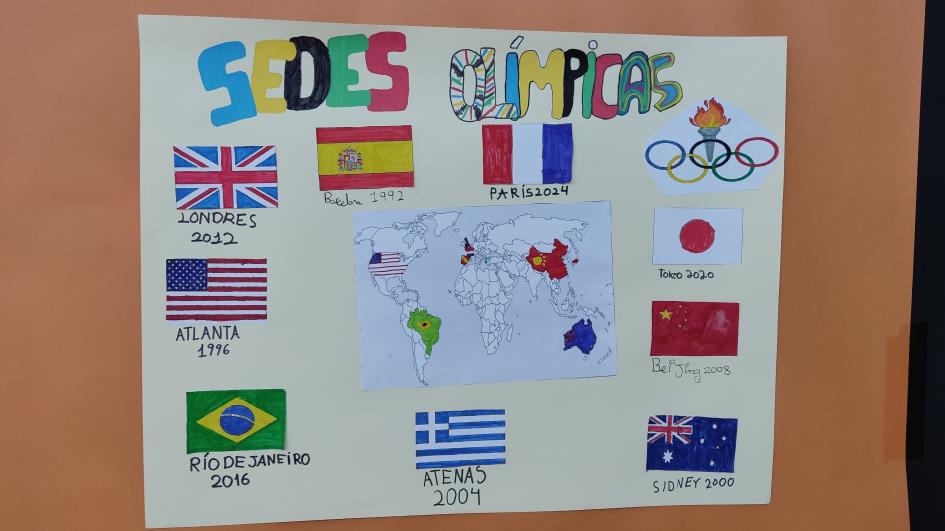 SEDES OLÍMPICAS
LONDRES
2012
Barcelona 1992
PARÍS2024
ATLANTA
1996
TOKIO 2020
Beijing 2008
RÍO DE JANEIRO
2016
ATENAS
2004
SIDNEY 2000